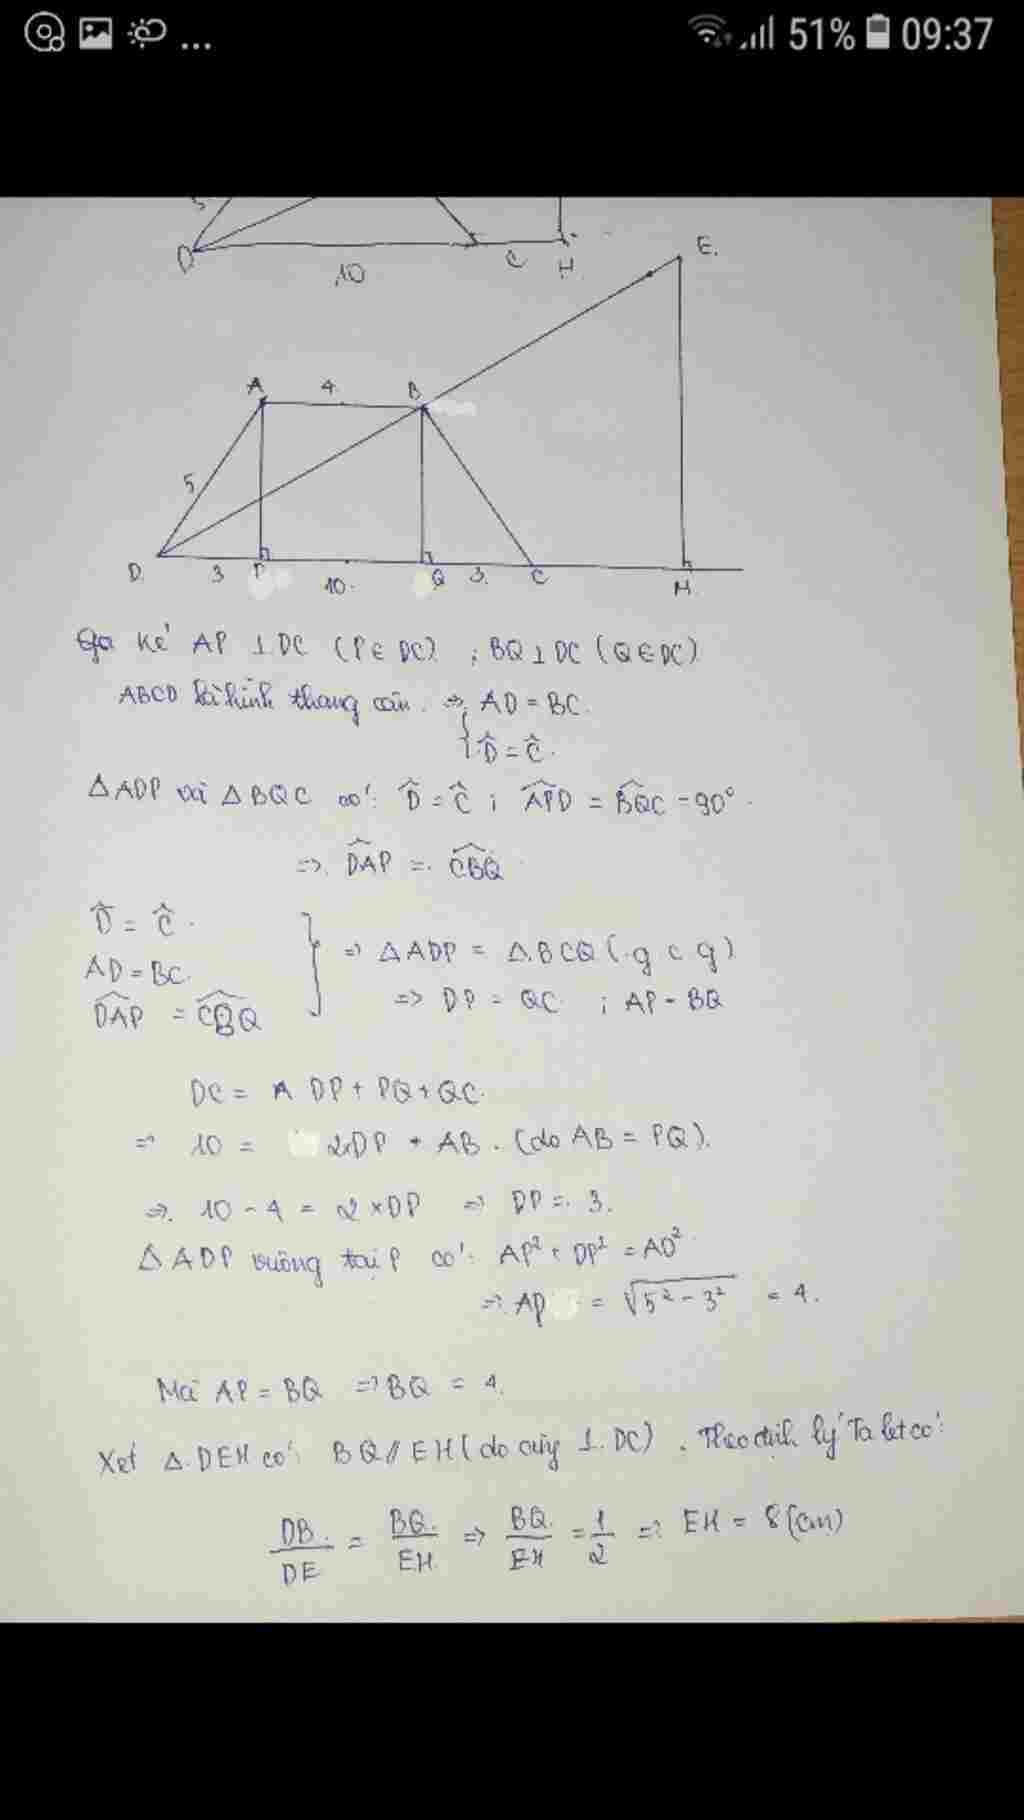 ... 51% 09:37
5
D 10 C H
E.
A 4 B
5
D. 3 P 10. Q 3. C H
Qua kẻ AP ⊥ DC (P ∈ DC) ; BQ ⊥ DC (Q ∈ DC)
ABCD là hình thang cân. => { AD = BC.
D̂ = Ĉ.
Δ ADP và Δ BQC có: D̂ = Ĉ ; \widehat{APD} = \widehat{BQC} = 90°.
=> \widehat{DAP} = \widehat{CBQ}
D̂ = Ĉ.
AD = BC. } => Δ ADP = Δ BCQ (g c g)
\widehat{DAP} = \widehat{CBQ} => DP = QC ; AP = BQ
DC = DP + PQ + QC.
=> 10 = 2xDP + AB. (do AB = PQ).
=> 10 - 4 = 2 x DP => DP = 3.
Δ ADP vuông tại P có: AP² + DP² = AD²
=> AP = √(5² - 3²) = 4.
Mà AP = BQ => BQ = 4.
Xét Δ DEH có: BQ // EH (do cùng ⊥ DC). Theo định lý Ta let có:
DB/DE = BQ/EH => BQ/EH = 1/2 => EH = 8 (cm)